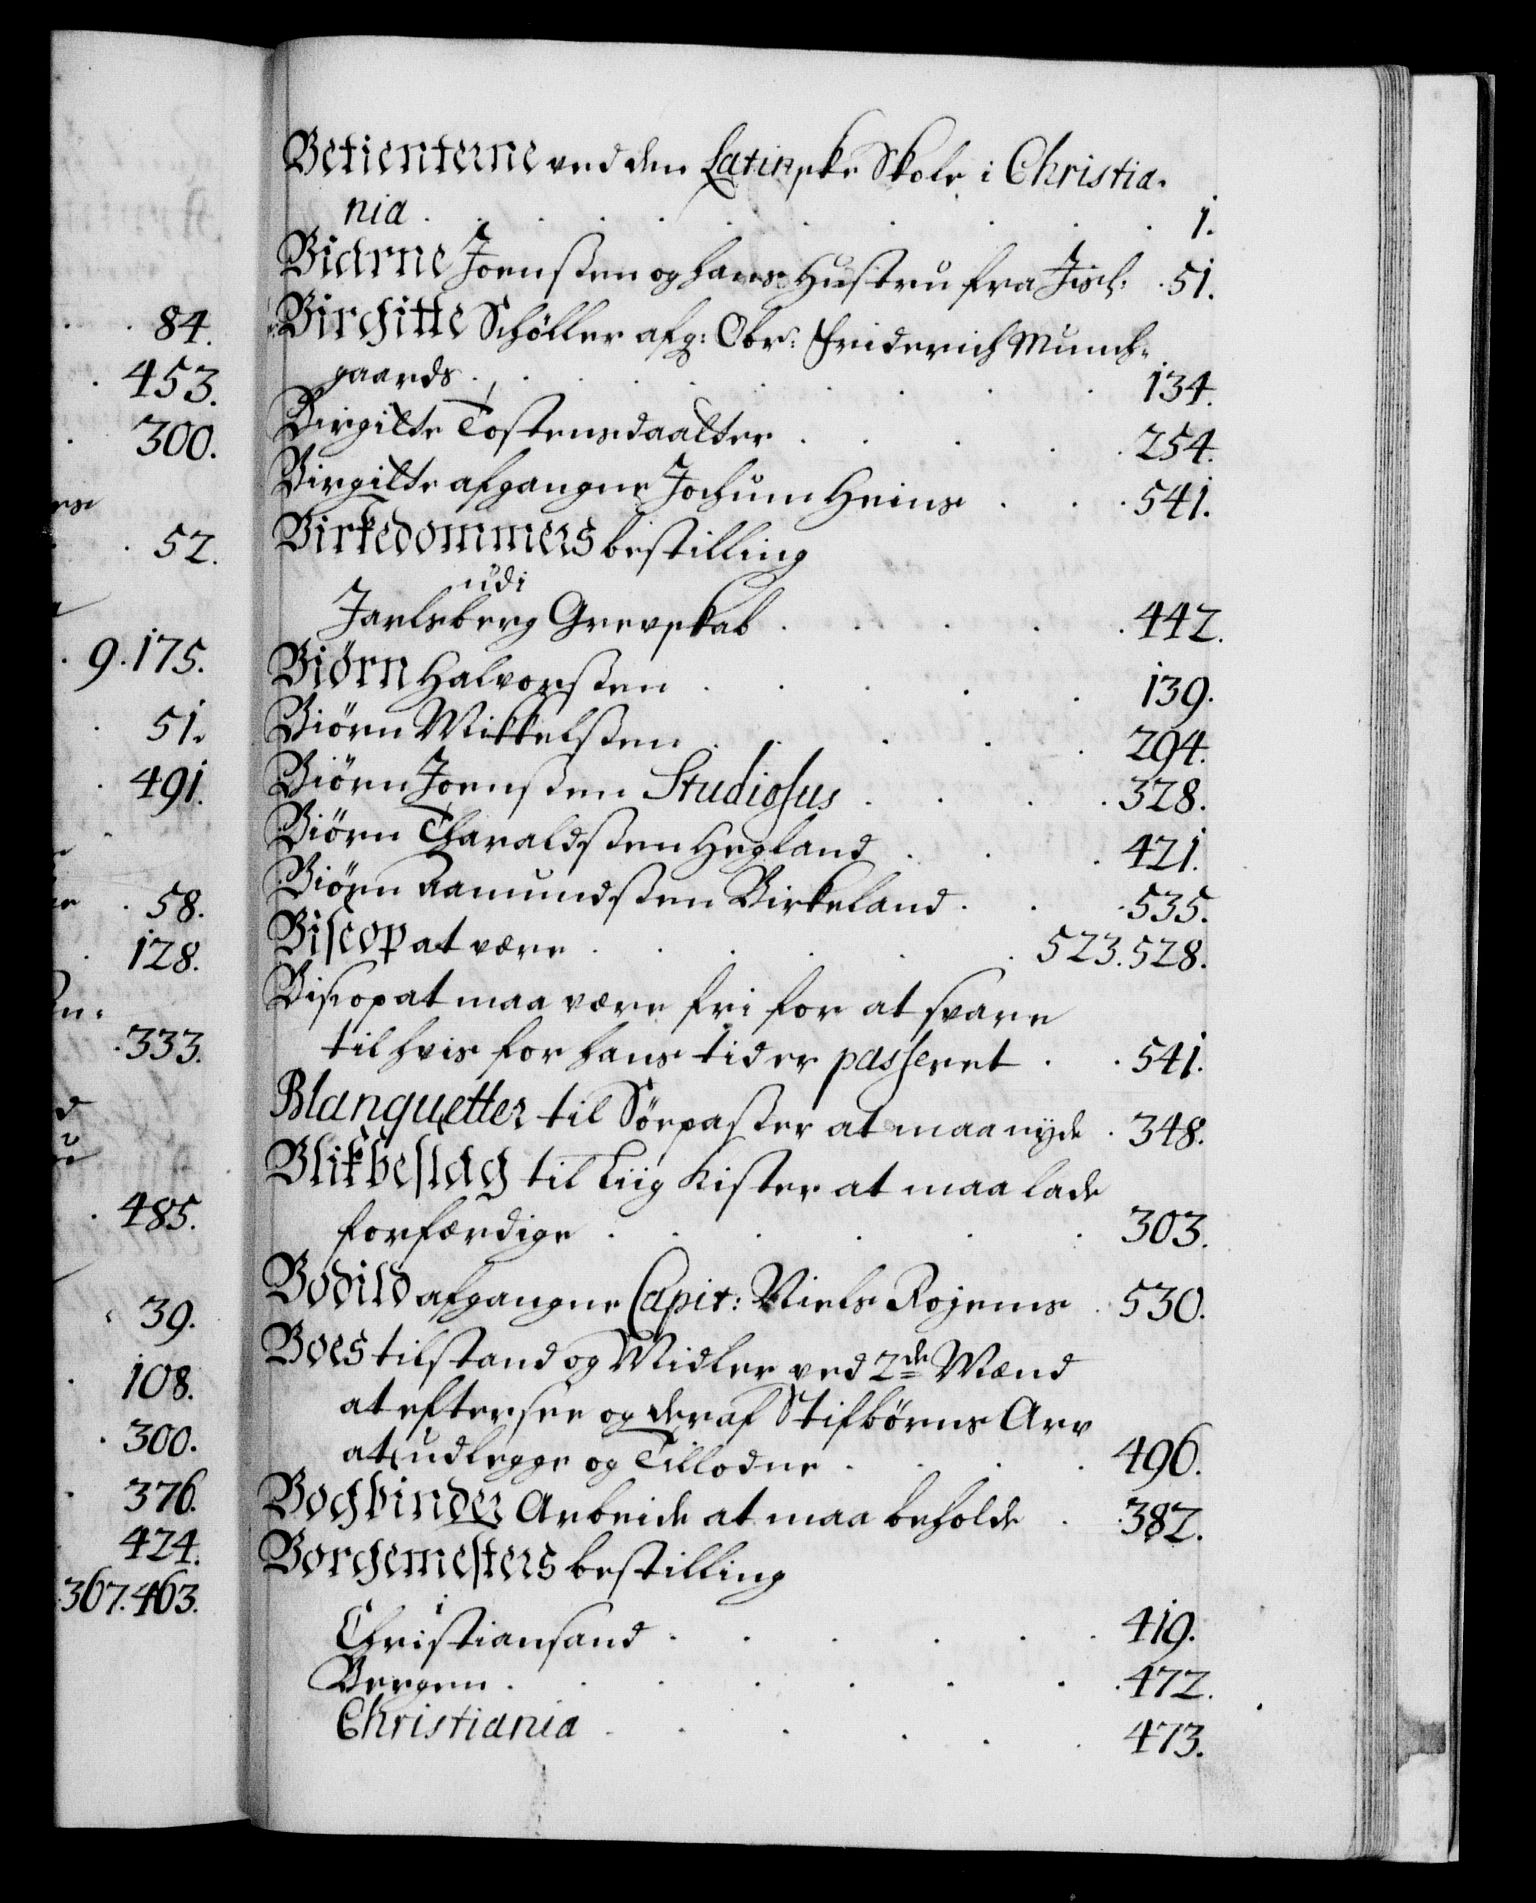 84.
453.
300.
52.
9.175.
51.
491.
58.
128.
333.
485.
39.
108.
300.
376.
424.
367.463.
Betienterne ved den Latinske Skole i Christia-
nia . . . . . . . . . 1.
Biarne Joenssen og hans Hustru fra Jisl: . 51.
Birgitte Schøller afg: Obr: Friderich Munch-
gaards . . . . . . . . 134.
Birgitte Tostensdaatter . . . . 254.
Birgitte afgangne Jochum Heins . . . 541.
Birkedommers bestilling
udi
Jarlsberg Grevskab . . . . . 442.
Biørn Halvorssen . . . . . 139.
Biørn Mikkelssen . . . . . 294.
Biørn Joenssen Studiosus . . . . 328.
Biørn Tharaldssen Hegland . . . 421.
Biørn Aamundssen Birkeland . . . 535.
Biscop at være . . . . . 523.528.
Biscop at maa være fri for at svare
til hvis for hans tid er passeret . . 541.
Blanquetter til Söepasser at maa nyde . 348.
Blikbeslag til Liig Kister at maa lade
forfærdige . . . . . . 303.
Bodild afgangne Capit: Niels Rojems . 530.
Boes tilstand og Midler ved 2de Mænd
at eftersee og deraf Stifbørns Arv
at udlegge og Tillodne . . . . 496.
Bogbinder Arbeide at maa beholde . . 382.
Borgemesters bestilling
i
Christiansand . . . . . . 419.
Bergen . . . . . . . 472.
Christiania . . . . . . 473.